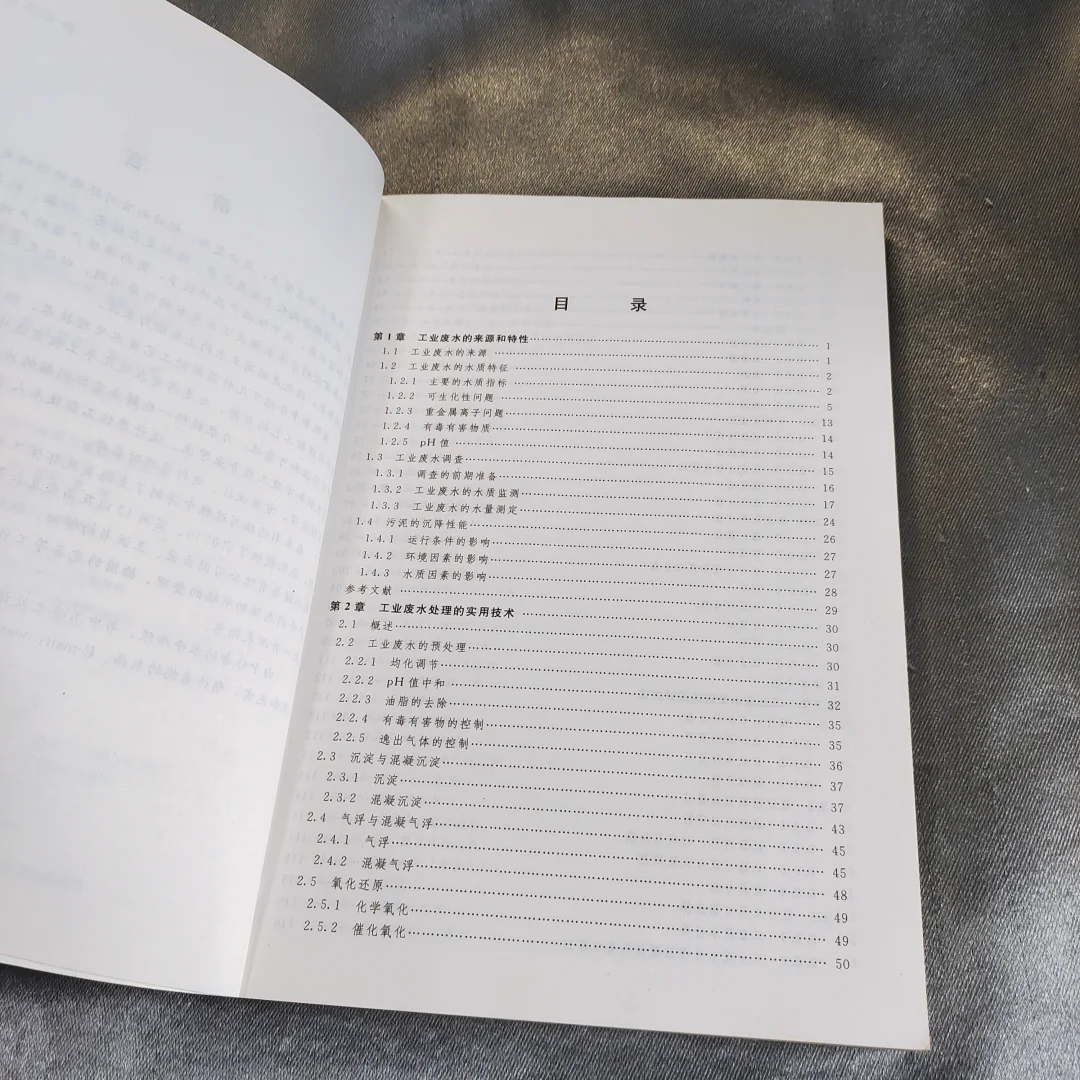 目 录
第1章 工业废水的来源和特性……1
1.1 工业废水的来源……1
1.2 工业废水的水质特征……2
1.2.1 主要的水质指标……2
1.2.2 可生化性问题……5
1.2.3 重金属离子问题……13
1.2.4 有毒有害物质……14
1.2.5 pH值……14
1.3 工业废水调查……15
1.3.1 调查的前期准备……16
1.3.2 工业废水的水质监测……17
1.3.3 工业废水的水量测定……24
1.4 污泥的沉降性能……26
1.4.1 运行条件的影响……27
1.4.2 环境因素的影响……27
1.4.3 水质因素的影响……28
参考文献……29
第2章 工业废水处理的实用技术……30
2.1 概述……30
2.2 工业废水的预处理……30
2.2.1 均化调节……31
2.2.2 pH值中和……32
2.2.3 油脂的去除……35
2.2.4 有毒有害物的控制……35
2.2.5 逸出气体的控制……36
2.3 沉淀与混凝沉淀……37
2.3.1 沉淀……37
2.3.2 混凝沉淀……43
2.4 气浮与混凝气浮……45
2.4.1 气浮……45
2.4.2 混凝气浮……48
2.5 氧化还原……49
2.5.1 化学氧化……49
2.5.2 催化氧化……50